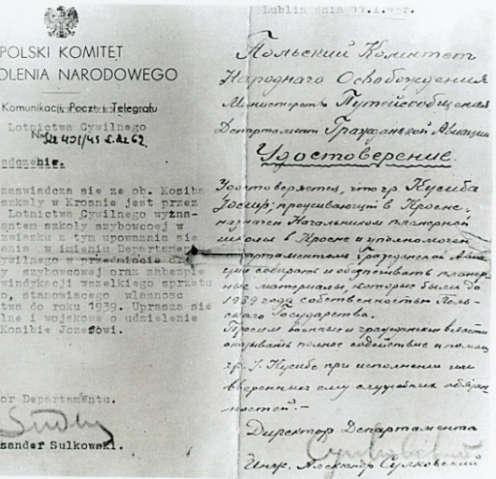 Lublin dnia
POLSKI KOMITET
OLENIA NARODOWEGO
Komunikacji Poczt i Telegrafu
Lotnictwa Cywilnego
dczenie.
zaswiadcza sie ze ob. Kosiba
szkoly w Krosnie jest przez
Lotnictwa Cywilnego wyzna-
antem szkoly szybowcowej w
zwiazku z tym upowaznia sie
enia w imieniu Departamen-
ywilnego w przedmiocie
y szybowcowej oraz zabezpie
windykacji wszelkiego sprzetu
o, stanowiacego wlasnosc
stwa do roku 1939. Uprasza sie
lne i wojskowe o udzielenie
Kosibie Jozefowi.
or Departamentu.
ksander Sulkowski.
Польский Комитет
Народнаго Освобождения
Министерств Путейсообщения
Департамент Гражданской Авиации
Удостоверение.
Удостоверяется, что гр. Кусиба
Иосиф, проживающий в Кросне,
назначен Начальником планерной
школы в Кросне и уполномочен
партаментом Гражданской Авиа-
ции собирать и обезпечивать планер-
ные материалы, которые были до
1939 года собственностью Поль-
скаго Государства.
Просим военные и гражданские власти
оказывать полное содействие и помощь
гр. И. Кусибе при исполнении
вверенных ему служебных обязан-
ностей. —
Директор Департамента
Инж. Александр Сулковский